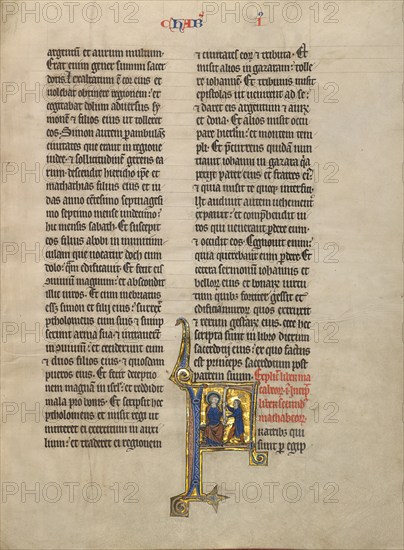 ChAB' I
argentū et aurum multum.
Erat enim gener summi sacer
dotis. Et exaltatum ē cor eius et
volebat obtinere regionem: et
cogitabat dolum adversus sy
monē et filios eius ut tolleret
eos. Simon autem pambulās
civitates que erant in regione
iudee et sollicitudinē gerens ea
rum descendit hiericho ipse et
mathathias filius eius et iu
das anno centesimo septuagesi
mo septimo mense undecimo
hic mensis sabath. Et suscepit
eos filius abobi in munitiun
culam que vocatur doch cum
dolo quam edificavit. Et fecit eis
convivium magnum: et abscondit
illic viros. Et cum inebriatus
esset simon et filii eius: surrexit
ptholomeus cum suis et sumps
serunt arma sua et intraverūt
in convivium: et occiderunt eum
et duos filios eius et quosdam
pueros eius. Et fecit deceptio
nem magnam in israel: et reddidit
mala pro bonis. Et scripsit hec
ptholomeus et misit regi ut
mitteret ei exercitum in auxi
lium: et traderet ei regionem
et civitates eorum et tributa. Et
misit alios in gazaram tolle
re iohannem: et tribunis misit
epistolas ut venirent ad se
et daret eis argentum et aurum
et dona. Et alios misit occu
pare hierusalem: et montem tem
pli. Et precurrens quidam nun
tiavit iohanni in gazara quod
periit pater eius et fratres eius
et quia misit te quoque interfici.
Ut audivit autem vehementer
expavit: et comprehendit vi
ros qui venerant perdere eum:
et occidit eos. Cognovit enim
quia querebant eum perdere. Et
cetera sermonum iohannis et
bellorum eius et bonarum virtu
tum quibus fortiter gessit et
edificationis murorum quos exstruxit
et rerum gestarum eius: ecce hec
scripta sunt in libro dierum
sacerdotii eius: ex quo factus
est princeps sacerdotum post
patrem suum. Explicit liber ma
chabeorum .i. Incipit
liber secundus
machabeorum.
Fratribus qui
sunt per egip
PHOTO12